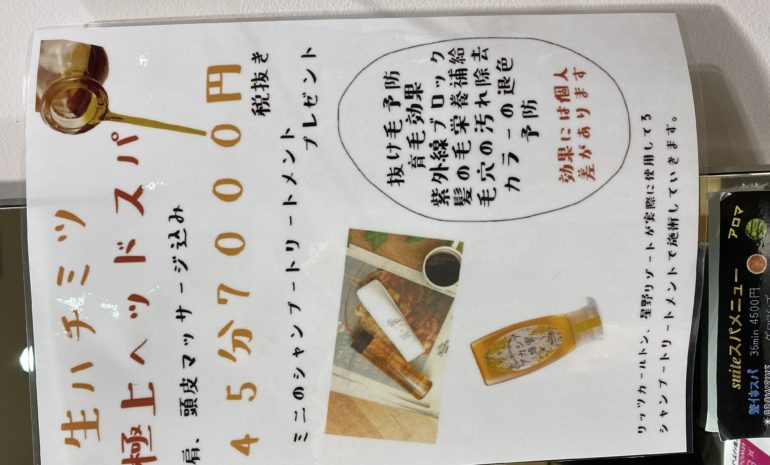 生ハチミツ
極上ヘッドスパ
肩、頭皮マッサージ込み
45分7000円
税抜き
ミニのシャンプートリートメント
プレゼント
抜け毛予防
育毛効果
紫外線ブロック
髪の毛栄養補給
毛穴の汚れ除去
カラーの退色
予防
効果には個人
差があります
リッツカールトン、星野リゾートが実際に使用してる
シャンプートリートメントで施術していきます。
suiteスパメニュー
アロマ
整体スパ 35min 4500円